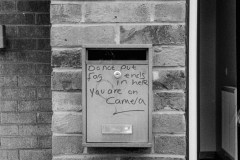 Do not put
fag ends
in here
You are on
Camera